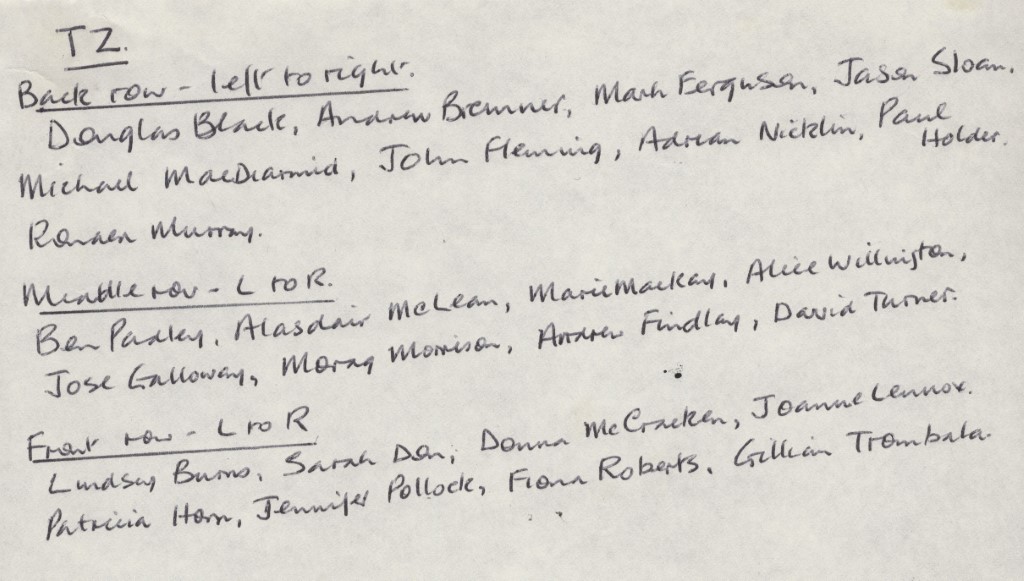 T2.
Back row - left to right.
Douglas Black, Andrew Bremner, Mark Ferguson, Jason Sloan.
Michael MacDiarmid, John Fleming, Adrian Nicklin, Paul Holder.
Ronan Murray.
Middle row - L to R.
Ben Padley, Alasdair McLean, Marie Mackay, Alice Willington,
Jose Galloway, Morag Morrison, Andrew Findlay, David Turner.
Front row - L to R
Lindsay Burns, Sarah Don, Donna McCracken, Joanne Lennox.
Patricia Horn, Jennifer Pollock, Fiona Roberts, Gillian Trombala.